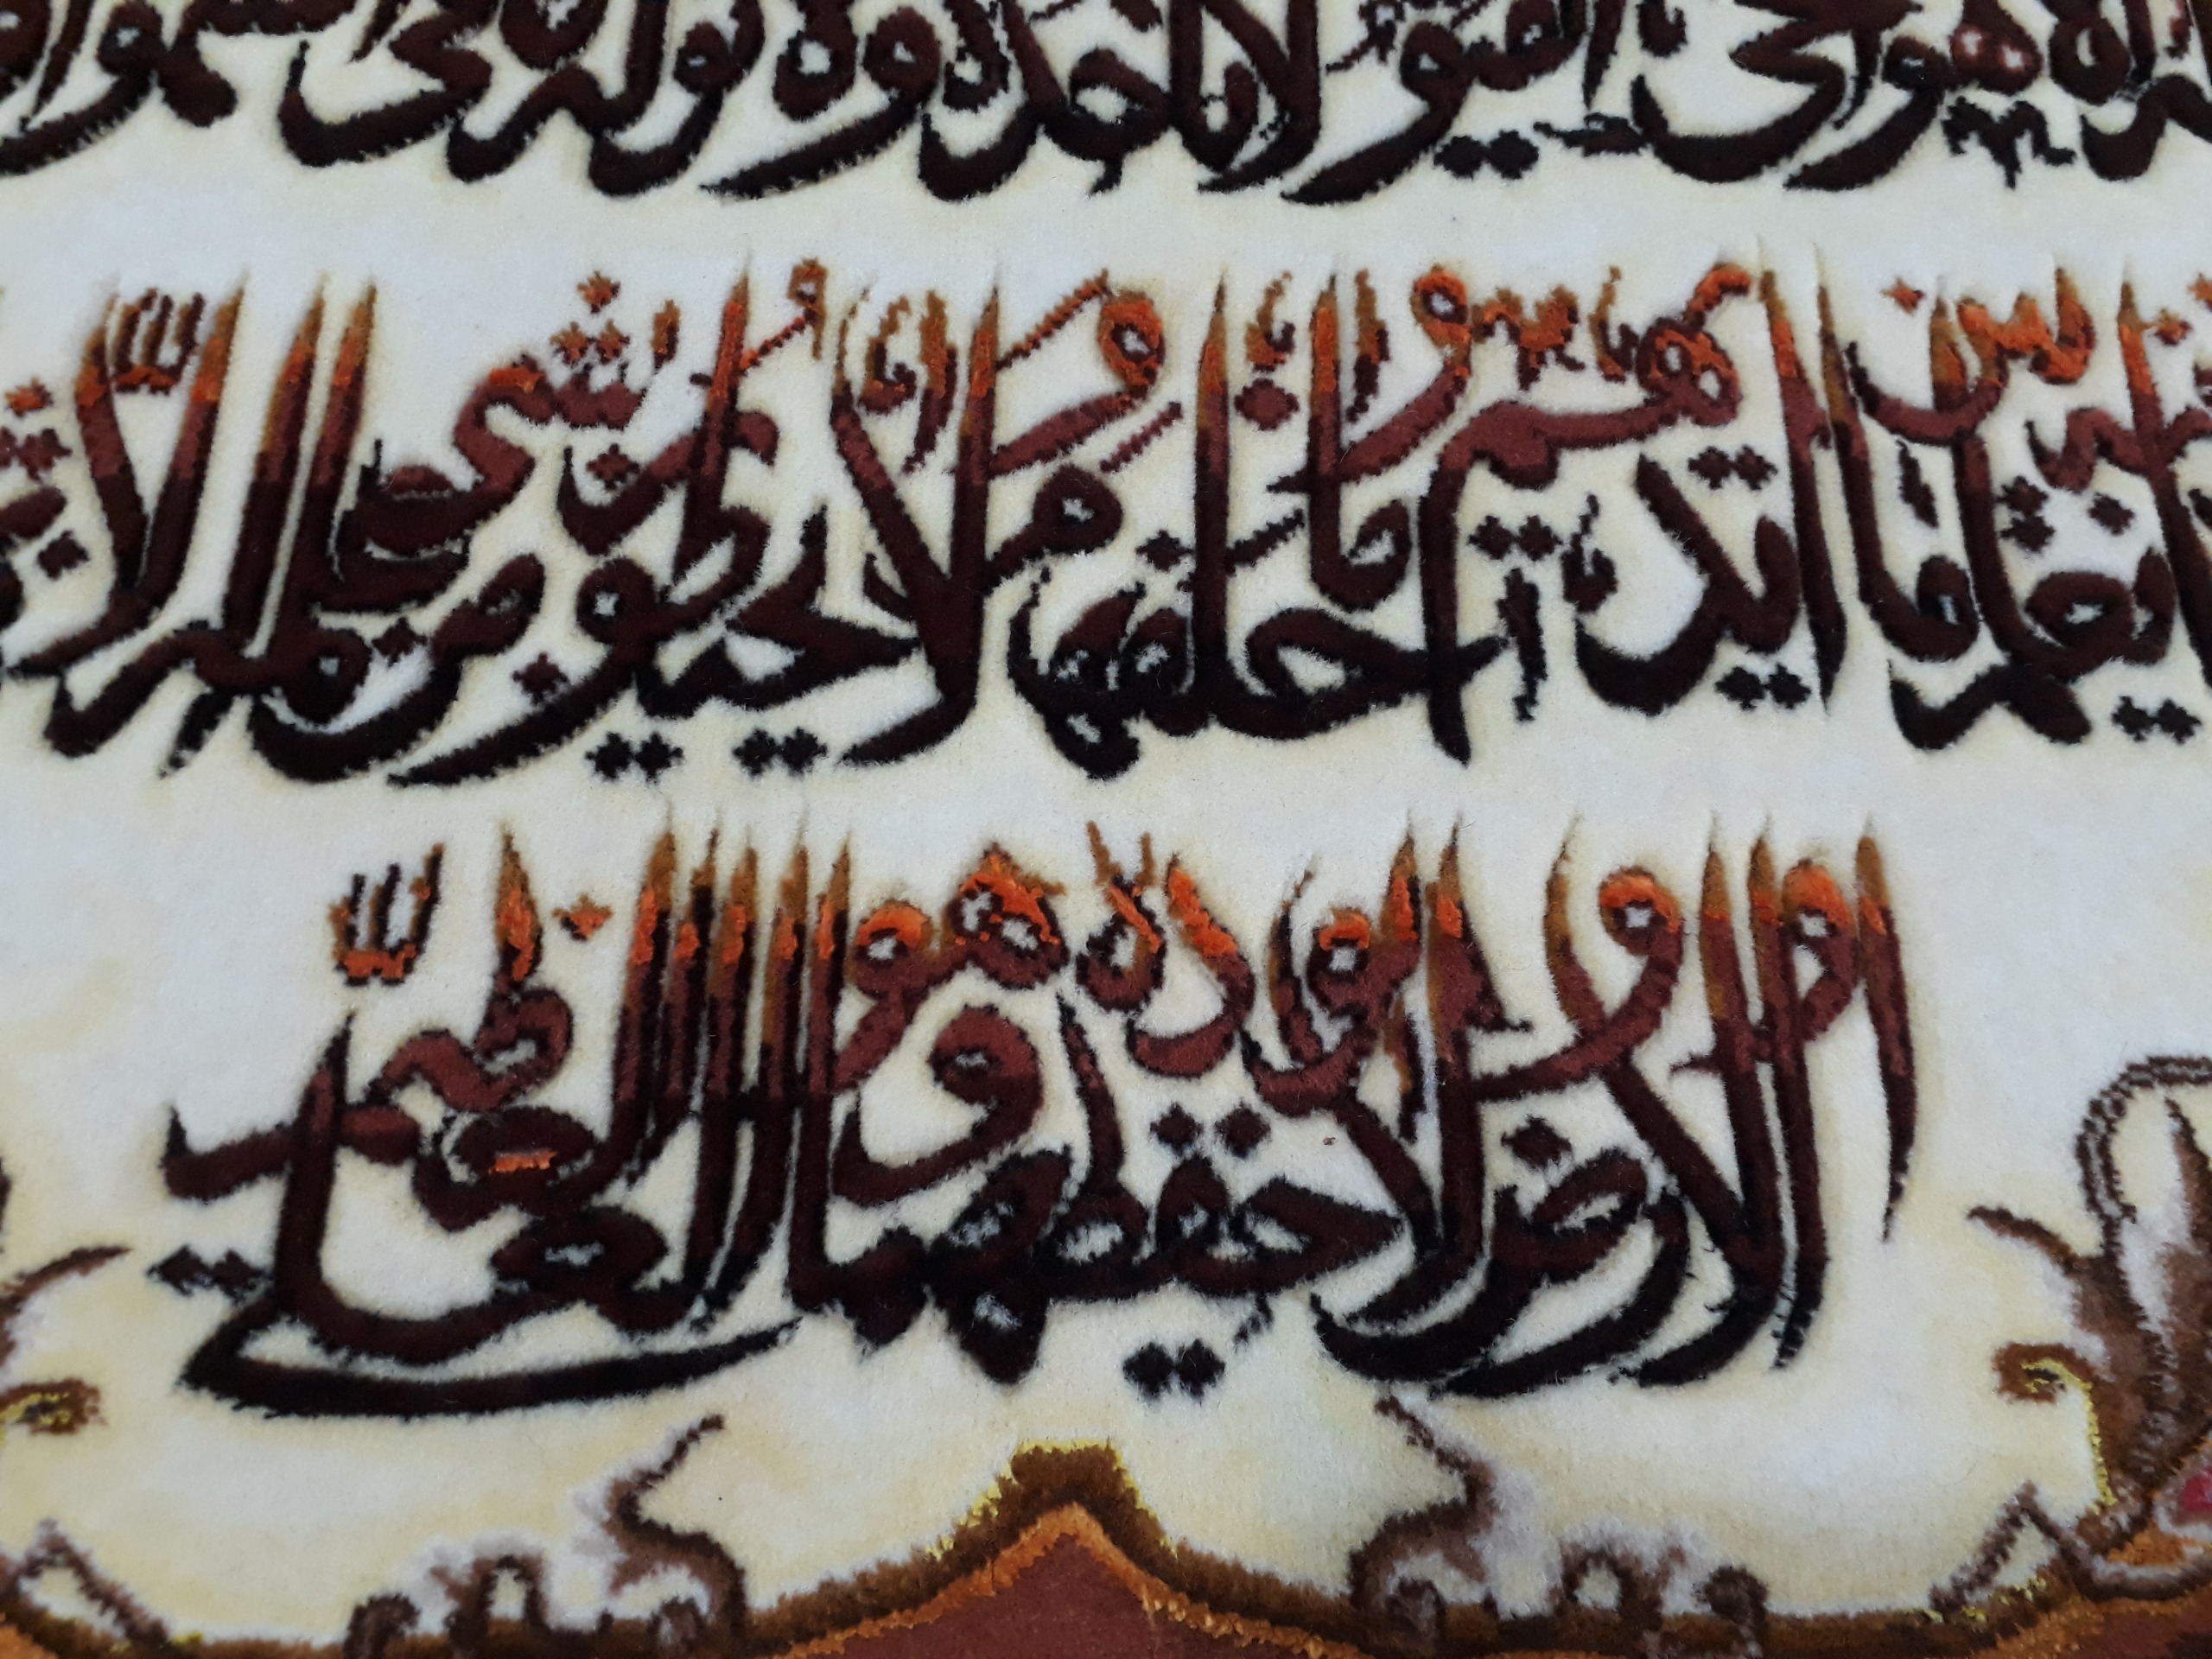 اله الا هو الحي القيوم لا تاخذه سنة ولا نوم له ما في السموات
يعلم ما بين ايديهم وما خلفهم ولا يحيطون بشي من علمه الا
والارض ولا يوده حفظهما وهو العلي العظيم